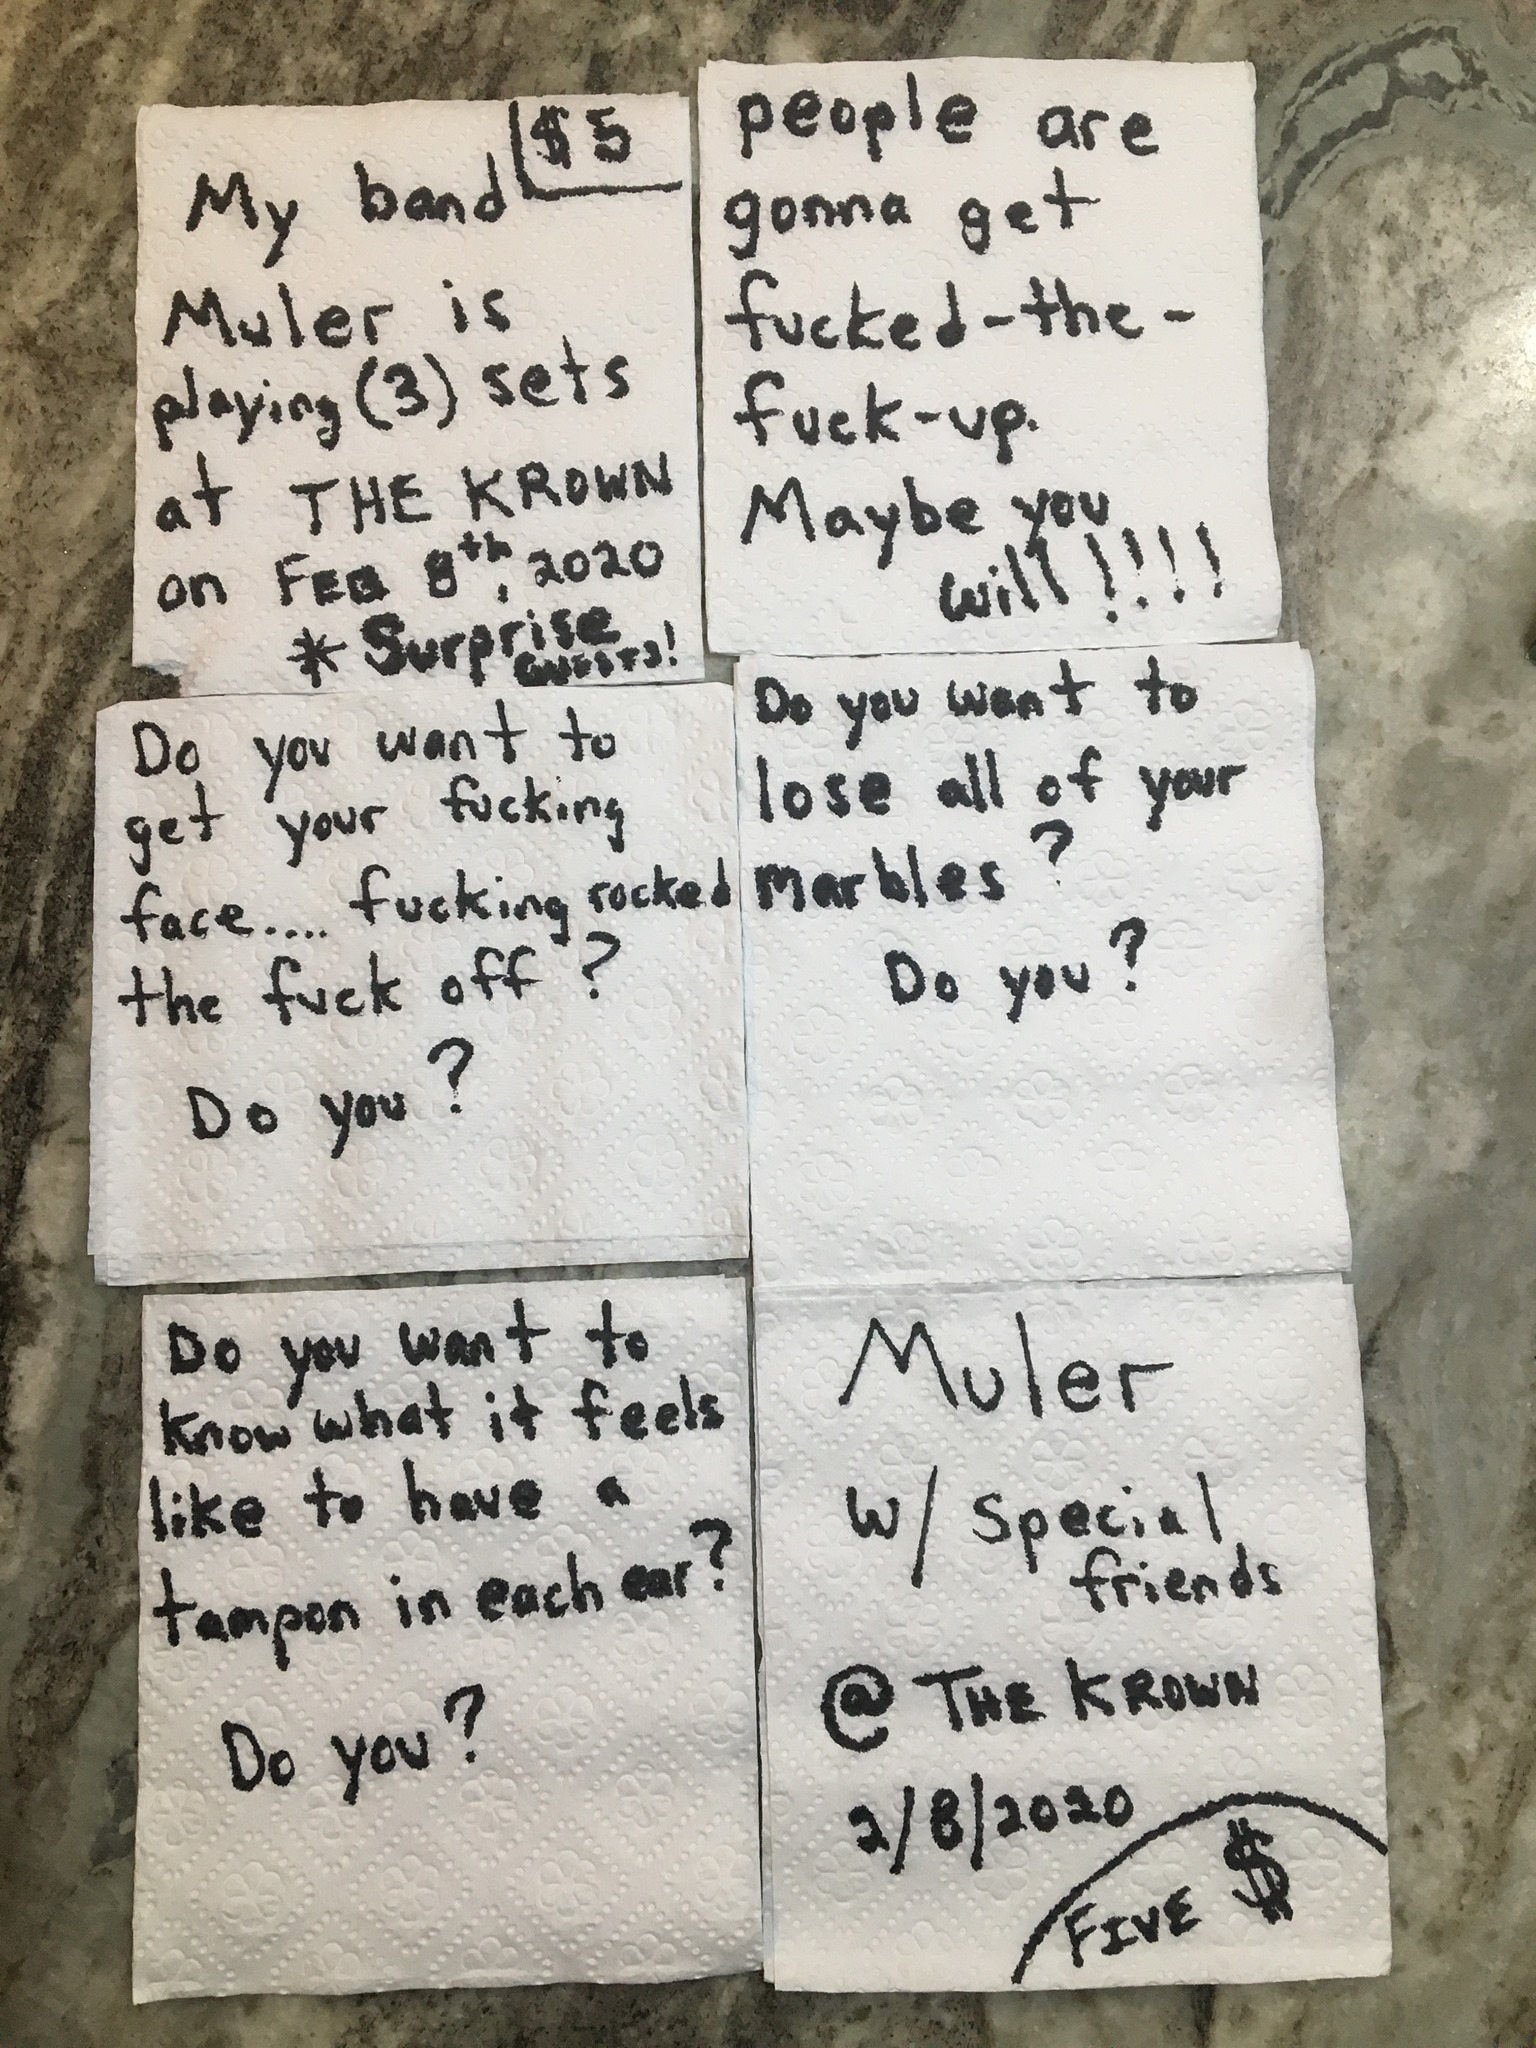 $5
My band
Muler is
playing (3) sets
at THE KROWN
on FEB 8th, 2020
* Surprise
GUESTS!
people are
gonna get
fucked-the-
fuck-up.
Maybe you
will!!!!
Do you want to
get your fucking
face.... fucking rocked
the fuck off?
Do you?
Do you want to
lose all of your
marbles?
Do you?
Do you want to
know what it feels
like to have a
tampon in each ear?
Do you?
Muler
w/ special
friends
@ THE KROWN
2/8/2020
FIVE $